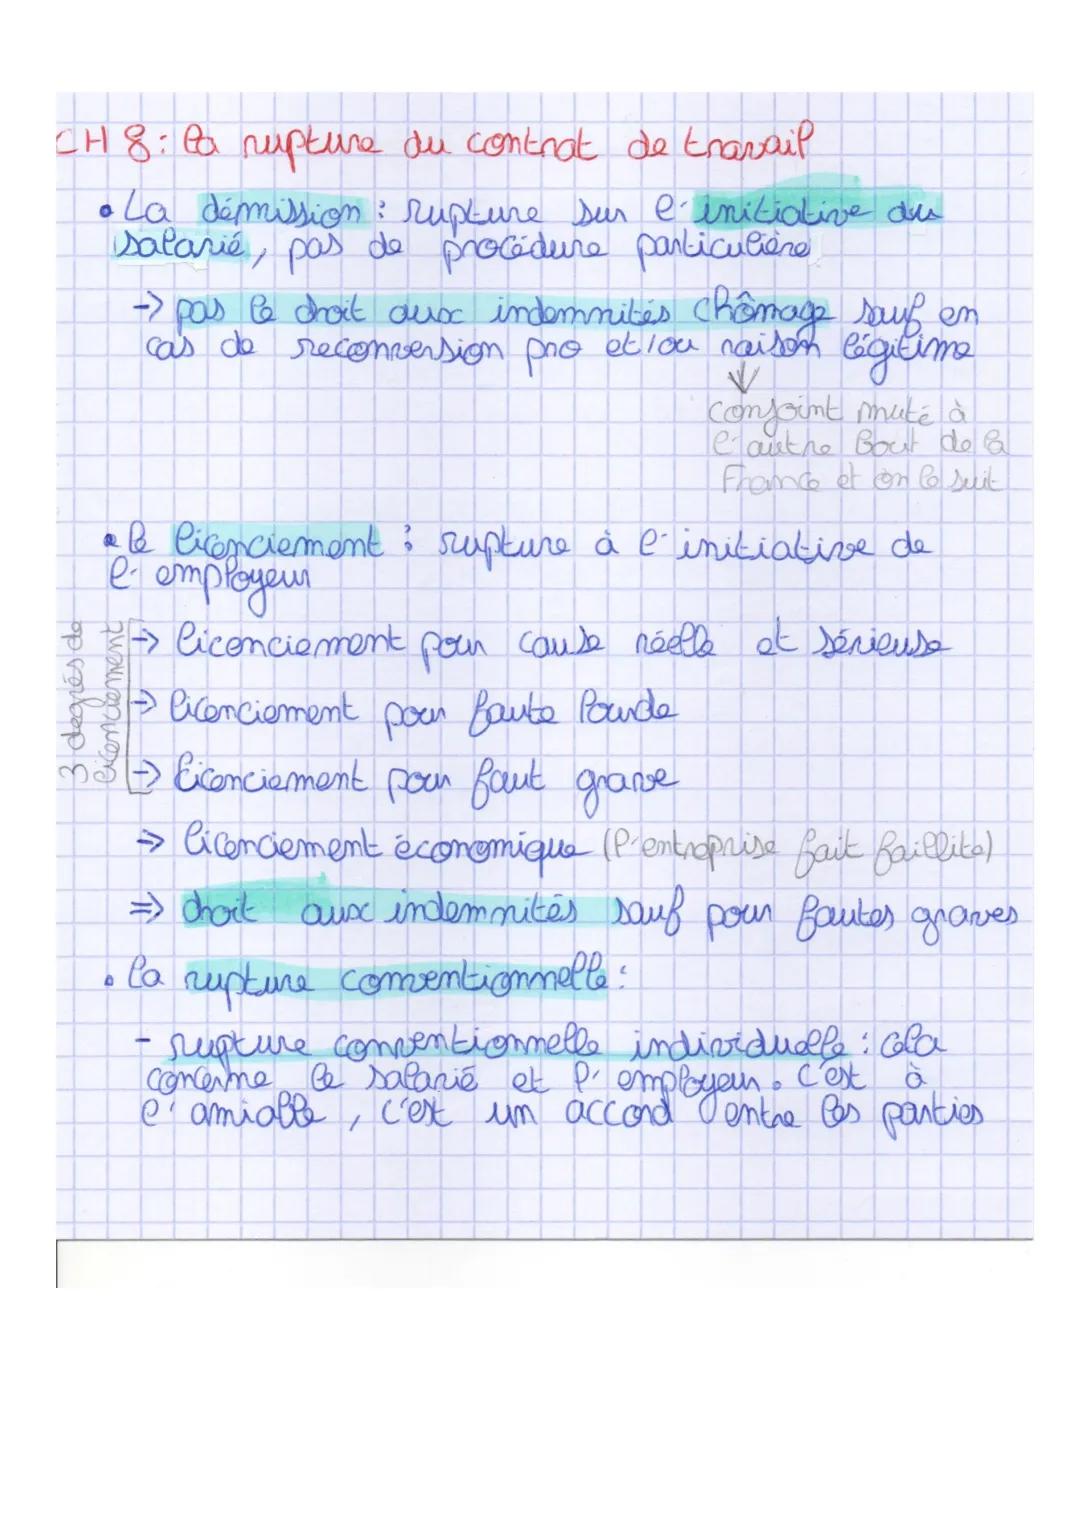 CH 8 : la rupture du contrat de travail
• La démission : rupture sur l'initiative du
salarié, pas de procédure particulière
-> pas le droit aux indemnités chômage sauf en
cas de reconversion pro et/ou raison légitime
conjoint muté à
l'autre bout de la
France et on le suit
• le licenciement : rupture à l'initiative de
l'employeur
3 degrés de
licenciement
-> licenciement pour cause réelle et sérieuse
-> licenciement pour faute lourde
-> licenciement pour faut grave
=> licenciement économique (l'entreprise fait faillite)
=> droit aux indemnités sauf pour fautes graves
• la rupture conventionnelle :
- rupture conventionnelle individuelle : cela
concerne le salarié et l'employeur. C'est à
l'amiable, c'est un accord entre les parties